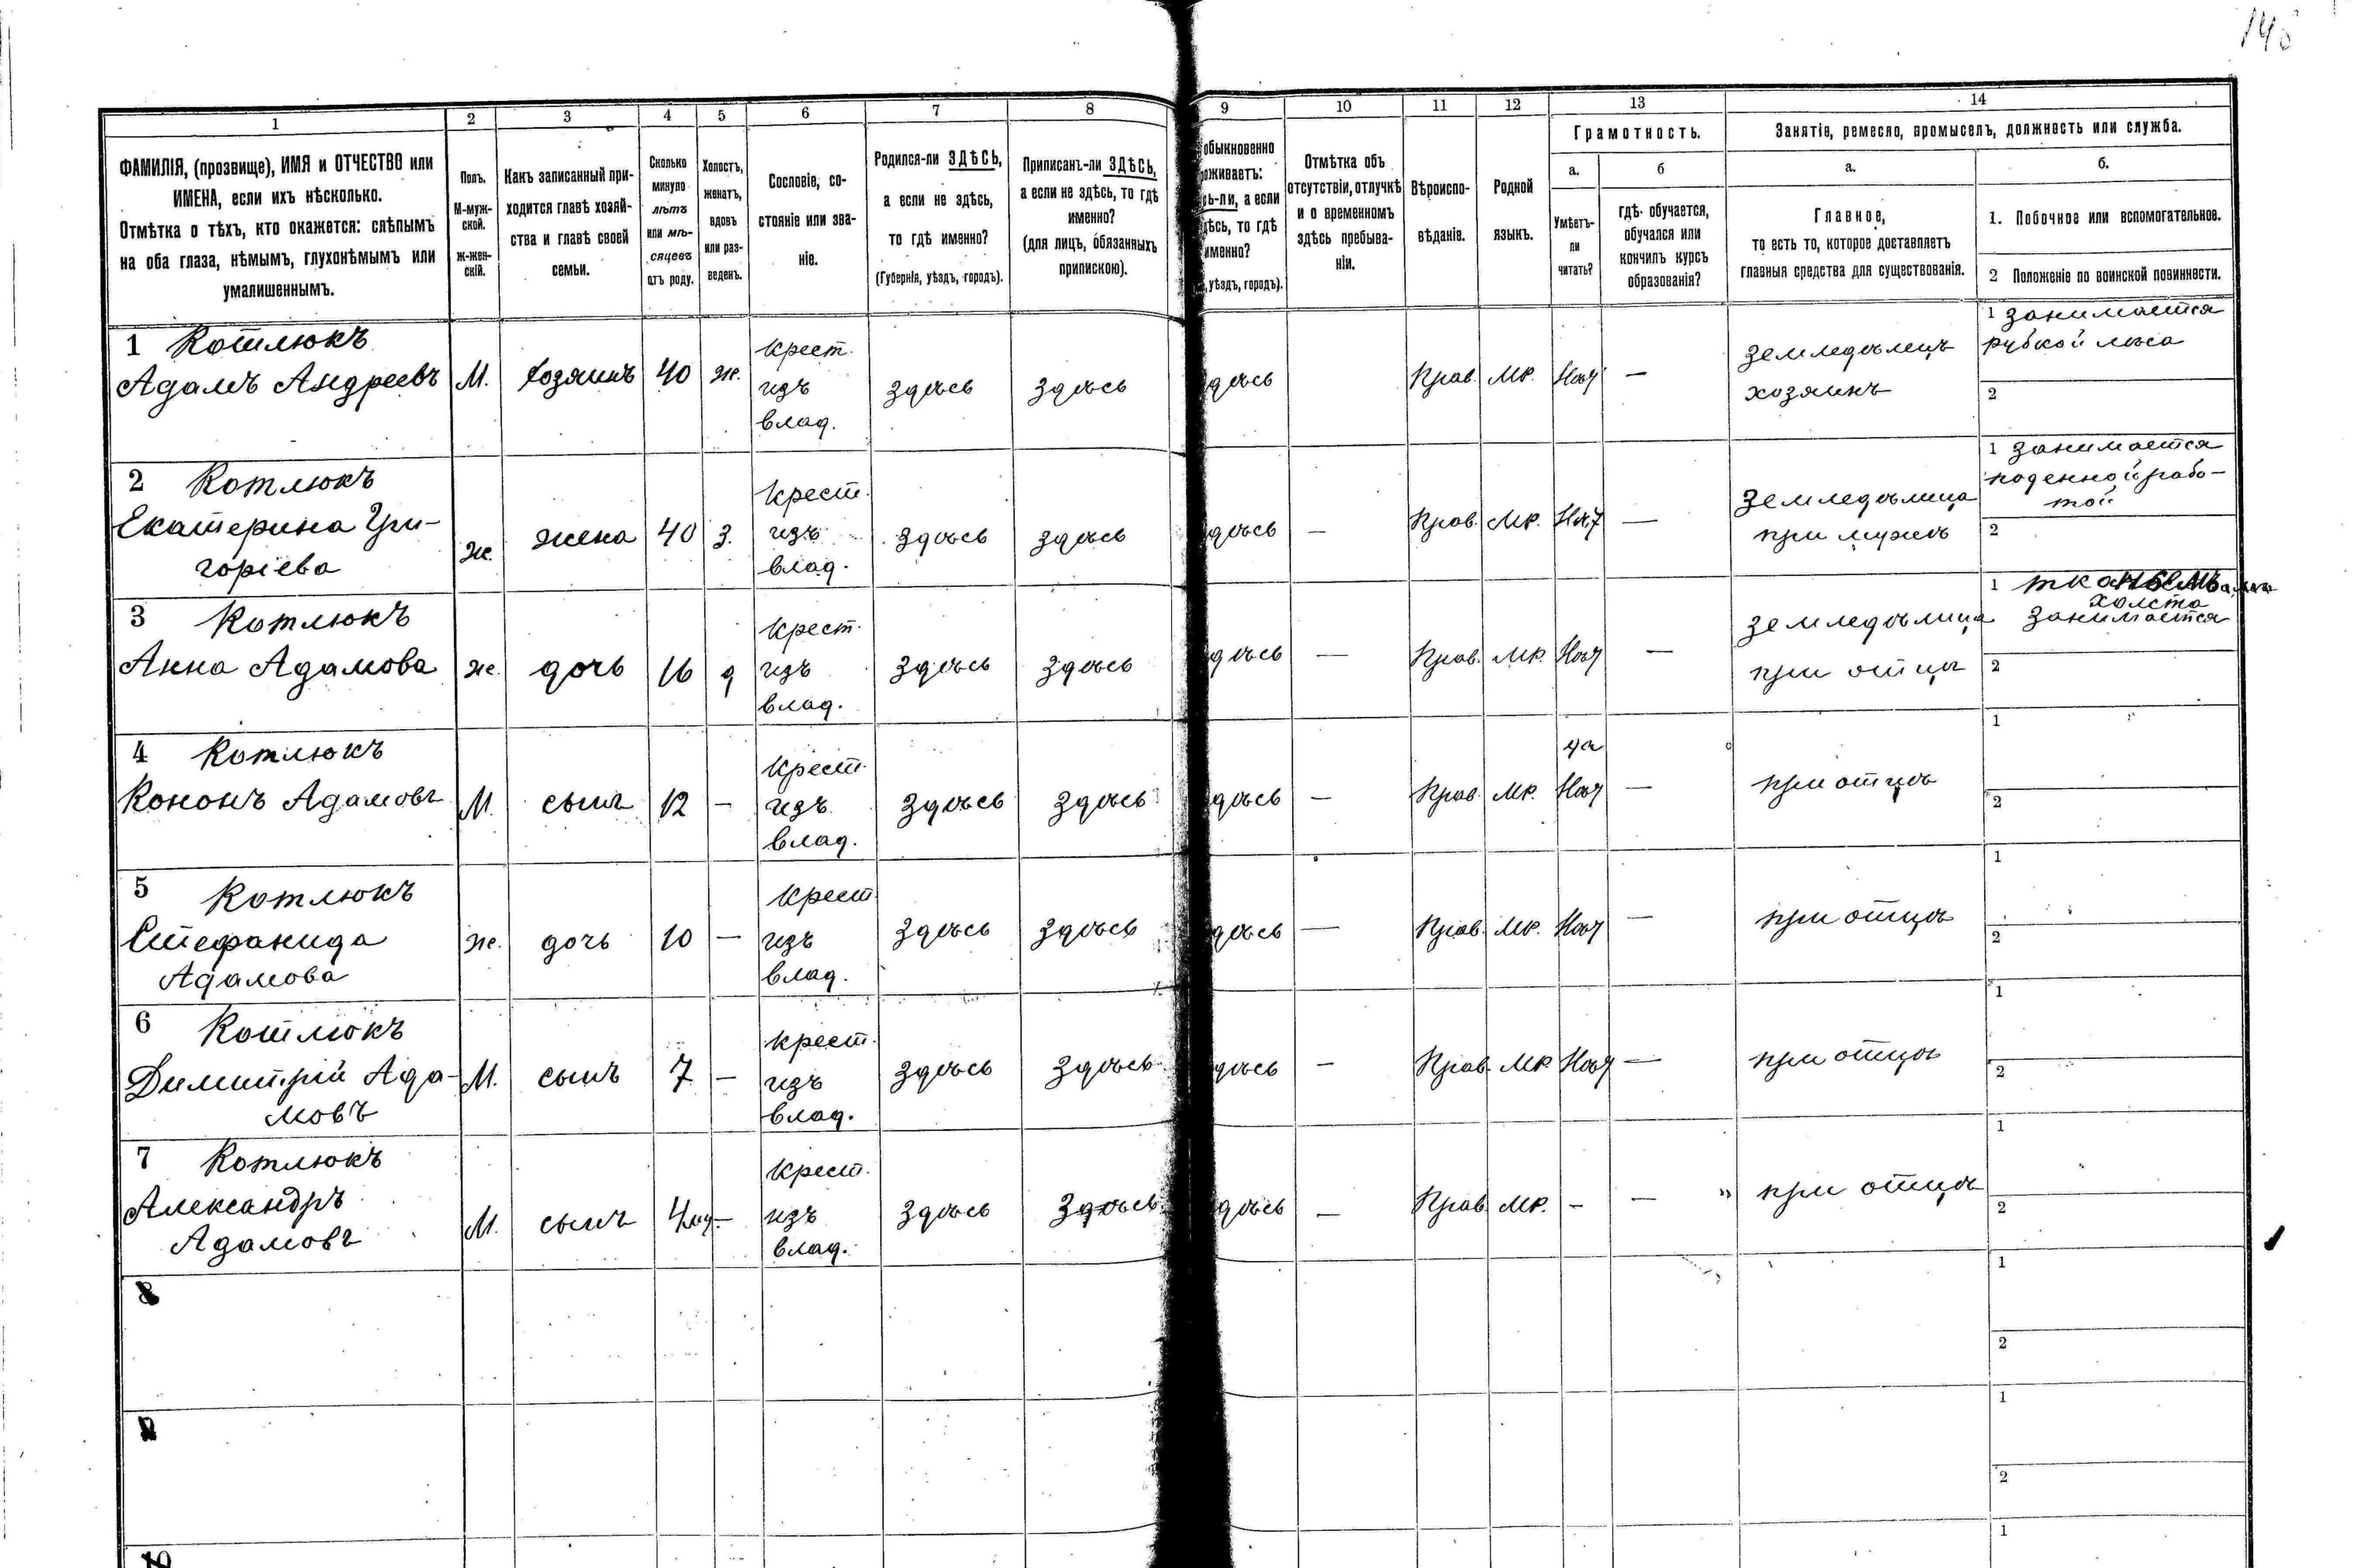 145
1 2 3 4 5 6 7 8 9 10 11 12 13 14
ФАМИЛІЯ, (прозвище), ИМЯ и ОТЧЕСТВО или
ИМЕНА, если ихъ нѣсколько.
Отмѣтка о тѣхъ, кто окажется: слѣпымъ
на оба глаза, нѣмымъ, глухонѣмымъ или
умалишеннымъ.
Полъ.
М-муж-
ской.
Ж-жен-
скій.
Какъ записанный при-
ходится главѣ хозяй-
ства и главѣ своей
семьи.
Сколько
минуло
лѣтъ
или мѣ-
сяцевъ
отъ роду.
Холостъ,
женатъ,
вдовъ
или раз-
веденъ.
Сословіе, со-
стояніе или зва-
ніе.
Родился-ли ЗДѢСЬ,
а если не здѣсь,
то гдѣ именно?
(Губернія, уѣздъ, городъ).
Приписанъ-ли ЗДѢСЬ,
а если не здѣсь, то гдѣ
именно?
(для лицъ, обязанныхъ
припискою).
обыкновенно
оживаетъ:
сь-ли, а если
дѣсь, то гдѣ
именно?
, уѣздъ, городъ).
Отмѣтка объ
отсутствіи, отлучкѣ
и о временномъ
здѣсь пребыва-
ніи.
Вѣроиспо-
вѣданіе.
Родной
языкъ.
Грамотность.
а.
Умѣетъ-
ли
читать?
б
гдѣ обучается,
обучался или
кончилъ курсъ
образованія?
Занятіе, ремесло, промыселъ, должность или служба.
а.
Главное,
то есть то, которое доставляетъ
главныя средства для существованія.
б.
1. Побочное или вспомогательное.
2 Положеніе по воинской повинности.
1 Котлюкъ
Адамъ Андреевъ М. Хозяинъ 40 ж.
крест.
изъ
влад.
здѣсь здѣсь дѣсь Прав. Мр. Нѣт —
Земледѣлецъ
хозяинъ
1 занимается
рубкой лѣса
2
2 Котлюкъ
Екатерина Гри-
горіева
Ж. жена 40 З.
Крест.
изъ
влад.
здѣсь здѣсь дѣсь — Прав. Мр. Нѣт —
Земледѣлица
при мужѣ
1 занимается
поденной рабо-
той
2
3 Котлюкъ
Анна Адамова ж. дочь 16 д
Крест.
изъ
влад.
здѣсь здѣсь дѣсь — Прав. Мр. Нѣт —
земледѣлица
при отцѣ
1 тканьемъ
холста
занимается
2
4 Котлюкъ
Кононъ Адамовъ М. сынъ 12 —
Крест.
изъ
влад.
здѣсь здѣсь дѣсь — Прав. Мр.
да
Нѣт —
при отцѣ
1
2
5 Котлюкъ
Стефанида
Адамова
ж. дочь 10 —
Крест.
изъ
влад.
здѣсь здѣсь дѣсь — Прав. Мр. Нѣт —
при отцѣ
1
2
6 Котлюкъ
Димитрій Ада-
мовъ
М. сынъ 7 —
Крест.
изъ
влад.
здѣсь здѣсь дѣсь — Прав. Мр Нѣт —
при отцѣ
1
2
7 Котлюкъ
Александръ
Адамовъ
М. сынъ 4 —
Крест.
изъ
влад.
здѣсь здѣсь дѣсь — Прав. Мр. - —
при отцѣ
1
2
8
1
2
1
2
1